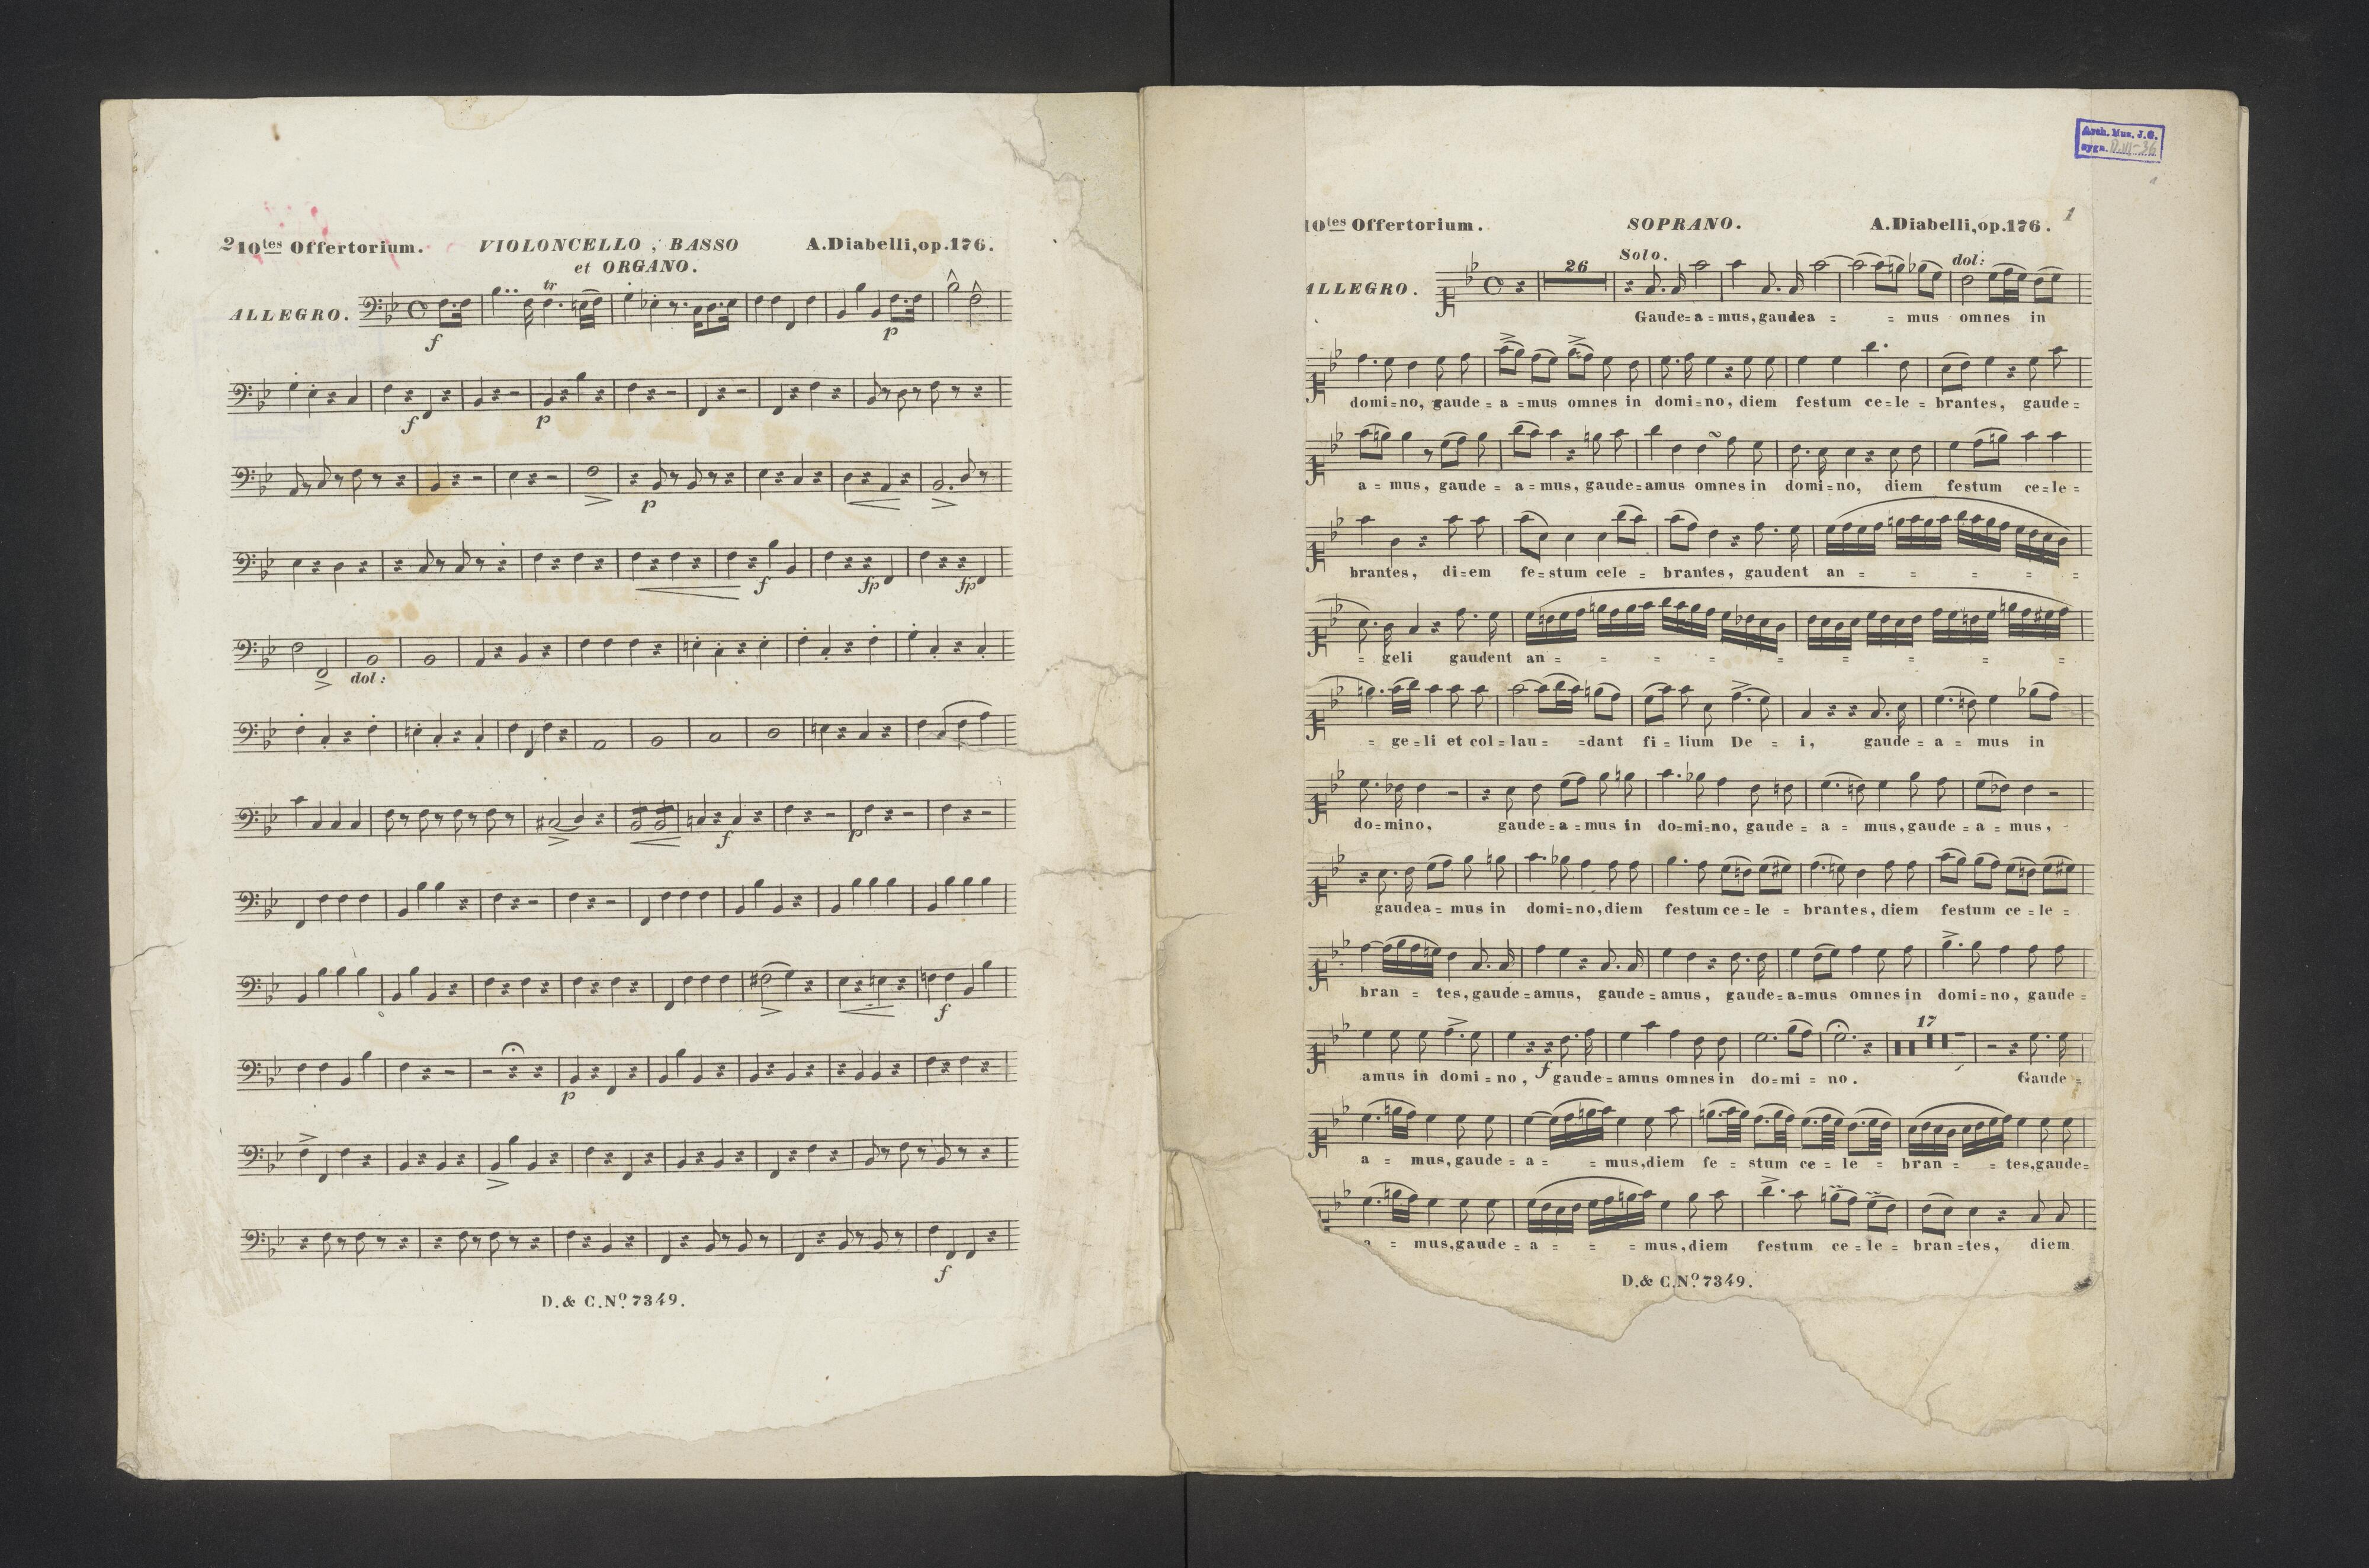 2 10tes Offertorium. VIOLONCELLO, BASSO A.Diabelli,op.176.
et ORGANO.
ALLEGRO.
tr
f
p
f
p
p
f
fp
fp
dol:
f
p
f
p
f
D.& C.No. 7349.
Arch. Mus. J.G.
sygn.
1
10tes Offertorium. SOPRANO. A.Diabelli,op.176.
ALLEGRO.
26
Solo.
dol:
Gaude=a=mus,gaudea = = mus omnes in
domi=no, gaude=a=mus omnes in domi=no, diem festum ce=le=brantes, gaude=
a=mus, gaude=a=mus, gaude=amus omnes in domi=no, diem festum ce=le=
brantes, di=em fe=stum cele=brantes, gaudent an= = = = =
= geli gaudent an= = = = = = = = =
= ge=li et col=lau= =dant fi=lium De=i, gaude=a=mus in
do=mino, gaude=a=mus in do=mi=no, gaude=a=mus,gaude=a=mus,
gaudea=mus in domi=no,diem festum ce=le=brantes, diem festum ce=le=
bran=tes,gaude=amus, gaude=amus, gaude=a=mus omnes in domi=no, gaude=
17
amus in domi=no, f gaude=amus omnes in do=mi=no. Gaude=
a=mus,gaude=a= =mus,diem fe=stum ce=le=bran= =tes,gaude=
a=mus,gaude=a= = =mus,diem festum ce=le=bran=tes, diem
D.& C.No. 7349.